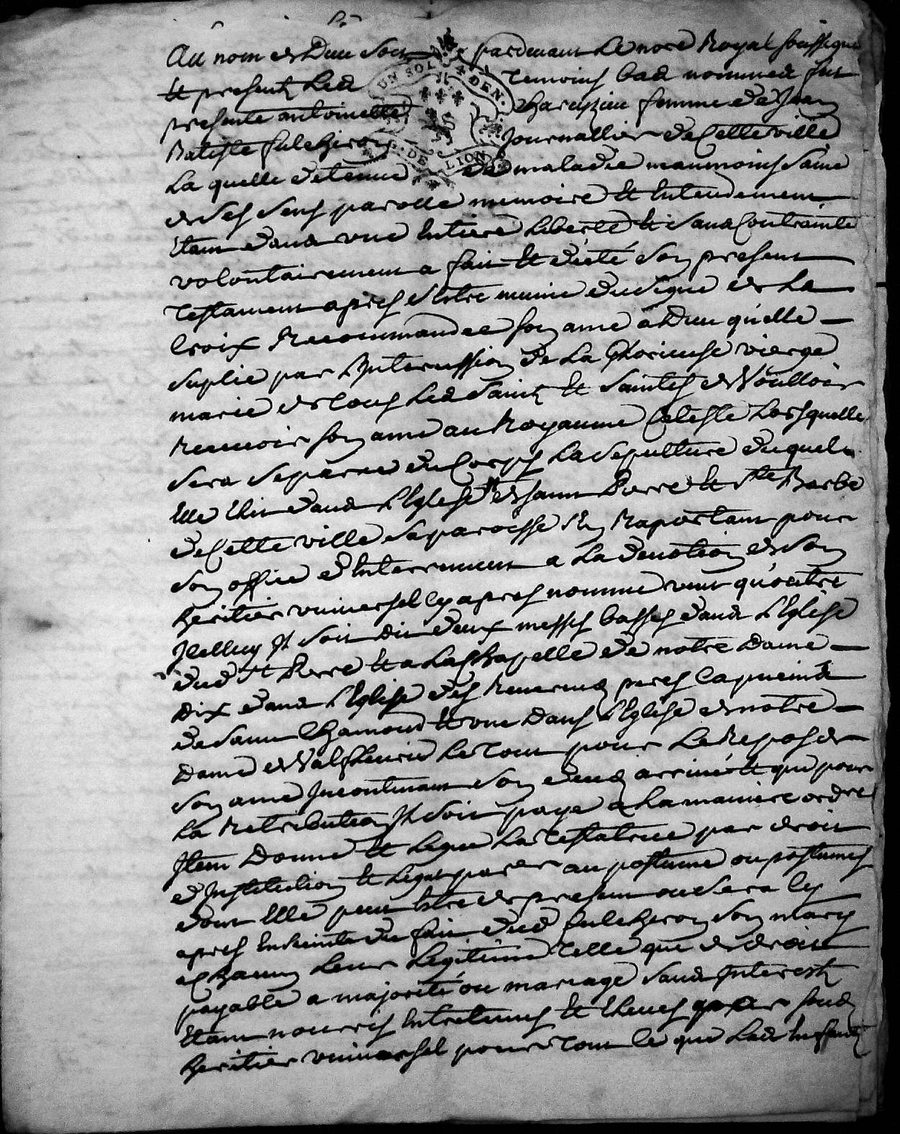 Au nom de Dieu soit pardevant le nore Royal soussigné
Et presentz les temoins bas nommes fut
presente antoinette femme de Jean
Batiste fulcheron Journallier de Cette ville
La quelle detenue de maladie neanmoins saine
de ses sens parolle memoire Et Entendement
Etant dans une Entiere Liberté Et sans Contrainte
volontairement a fait Et dicté son present
Testament apres s'etre munie du signe de La
Croix Recommandee son ame a Dieu qu'elle
suplie par L'Intercession de La Glorieuse vierge
marie de tous Les Saintz Et Saintes de Voulloir
Recevoir son ame au Royaume Celeste Lorsquelle
sera separee du Corps La sepulture duquel
Elle Elit dans L'Eglise de saint Pierre Et Ste Barbe
de Cette ville sa paroisse s'En Raportant pour
son office d'Enterrement a La devotion de son
heritier universel Cy apres nommé veut qu'outre
Icelluy Il soit dit deux messes basses dans L'Eglise
dud St Pierre Et a La Chapelle de notre Dame
Dix dans L'Eglise des Reverends peres Capucins
de Saint Chamond Et une Dans L'Eglise de notre
Dame de Valfleurie Le tout pour Le Repos de
son ame Incontinant son deces arrivé Et que pour
La Retribution Il soit payé a La maniere ordre
Item Donne Et Legue La Testatrice par droit
d'Institution Et Legat particulier au postume ou postumes
dont Elle peut Etre de present ou sera Cy
apres Enceinte du fait dud fulcheron son mary
a Chacun Leur Legitime telle que de droit
payable a majorité ou mariage sans Interest
Etant nourris Entretenus Et Eleves par sond
heritier universel pour tout ce que Lesd
UN SOL DEN.
DE LION